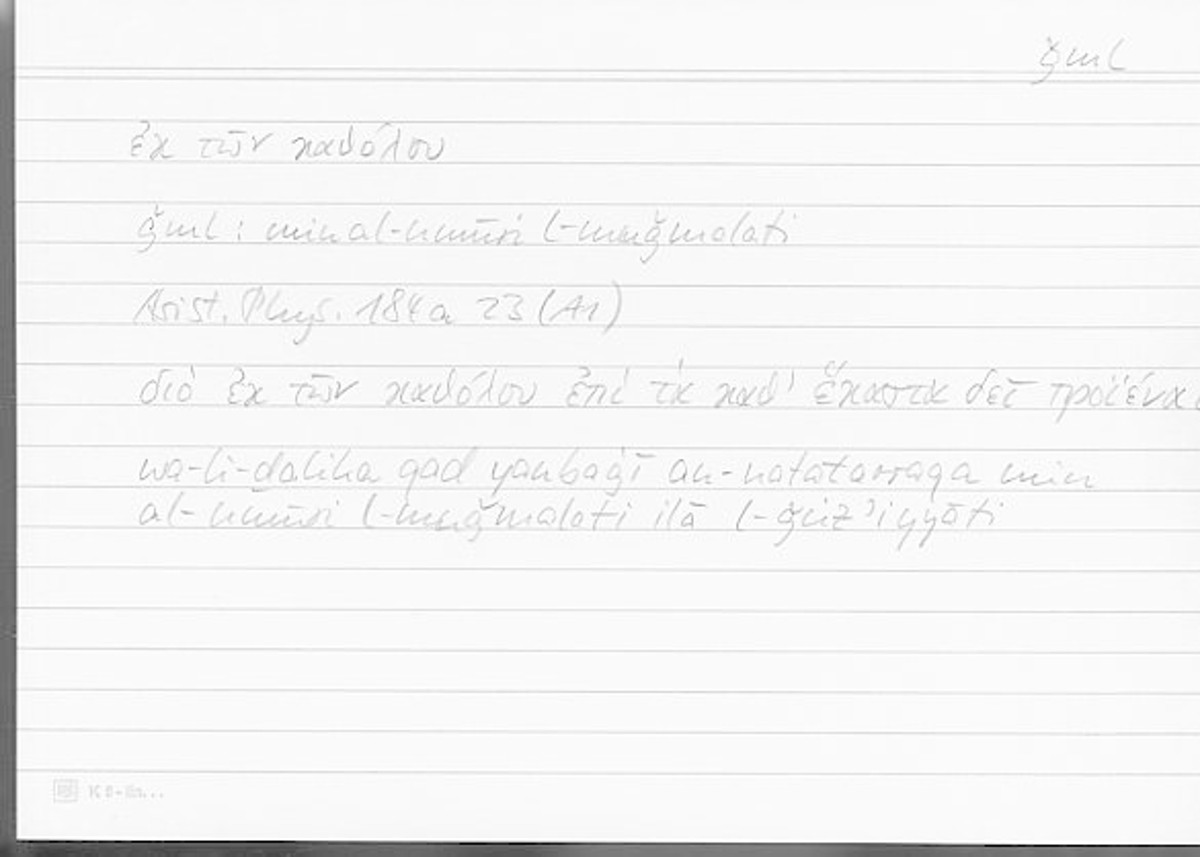 ǧml
ἐκ τῶν καθόλου
ǧml : min al-umūri l-muǧmalati
Arist. Phys. 184a 23 (A1)
διὸ ἐκ τῶν καθόλου ἐπὶ τὰ καθ' ἕκαστα δεῖ προϊέναι
wa-li-ḏalika qad yanbaġī an-natatarraqa min
al-umūri l-muǧmalati ilā l-ǧuz'iyyāti